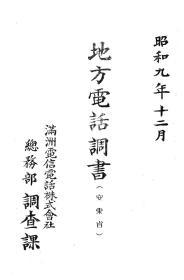 昭和九年十二月
地方電話調書
(安東省)
滿洲電信電話株式會社
總務部 調查課